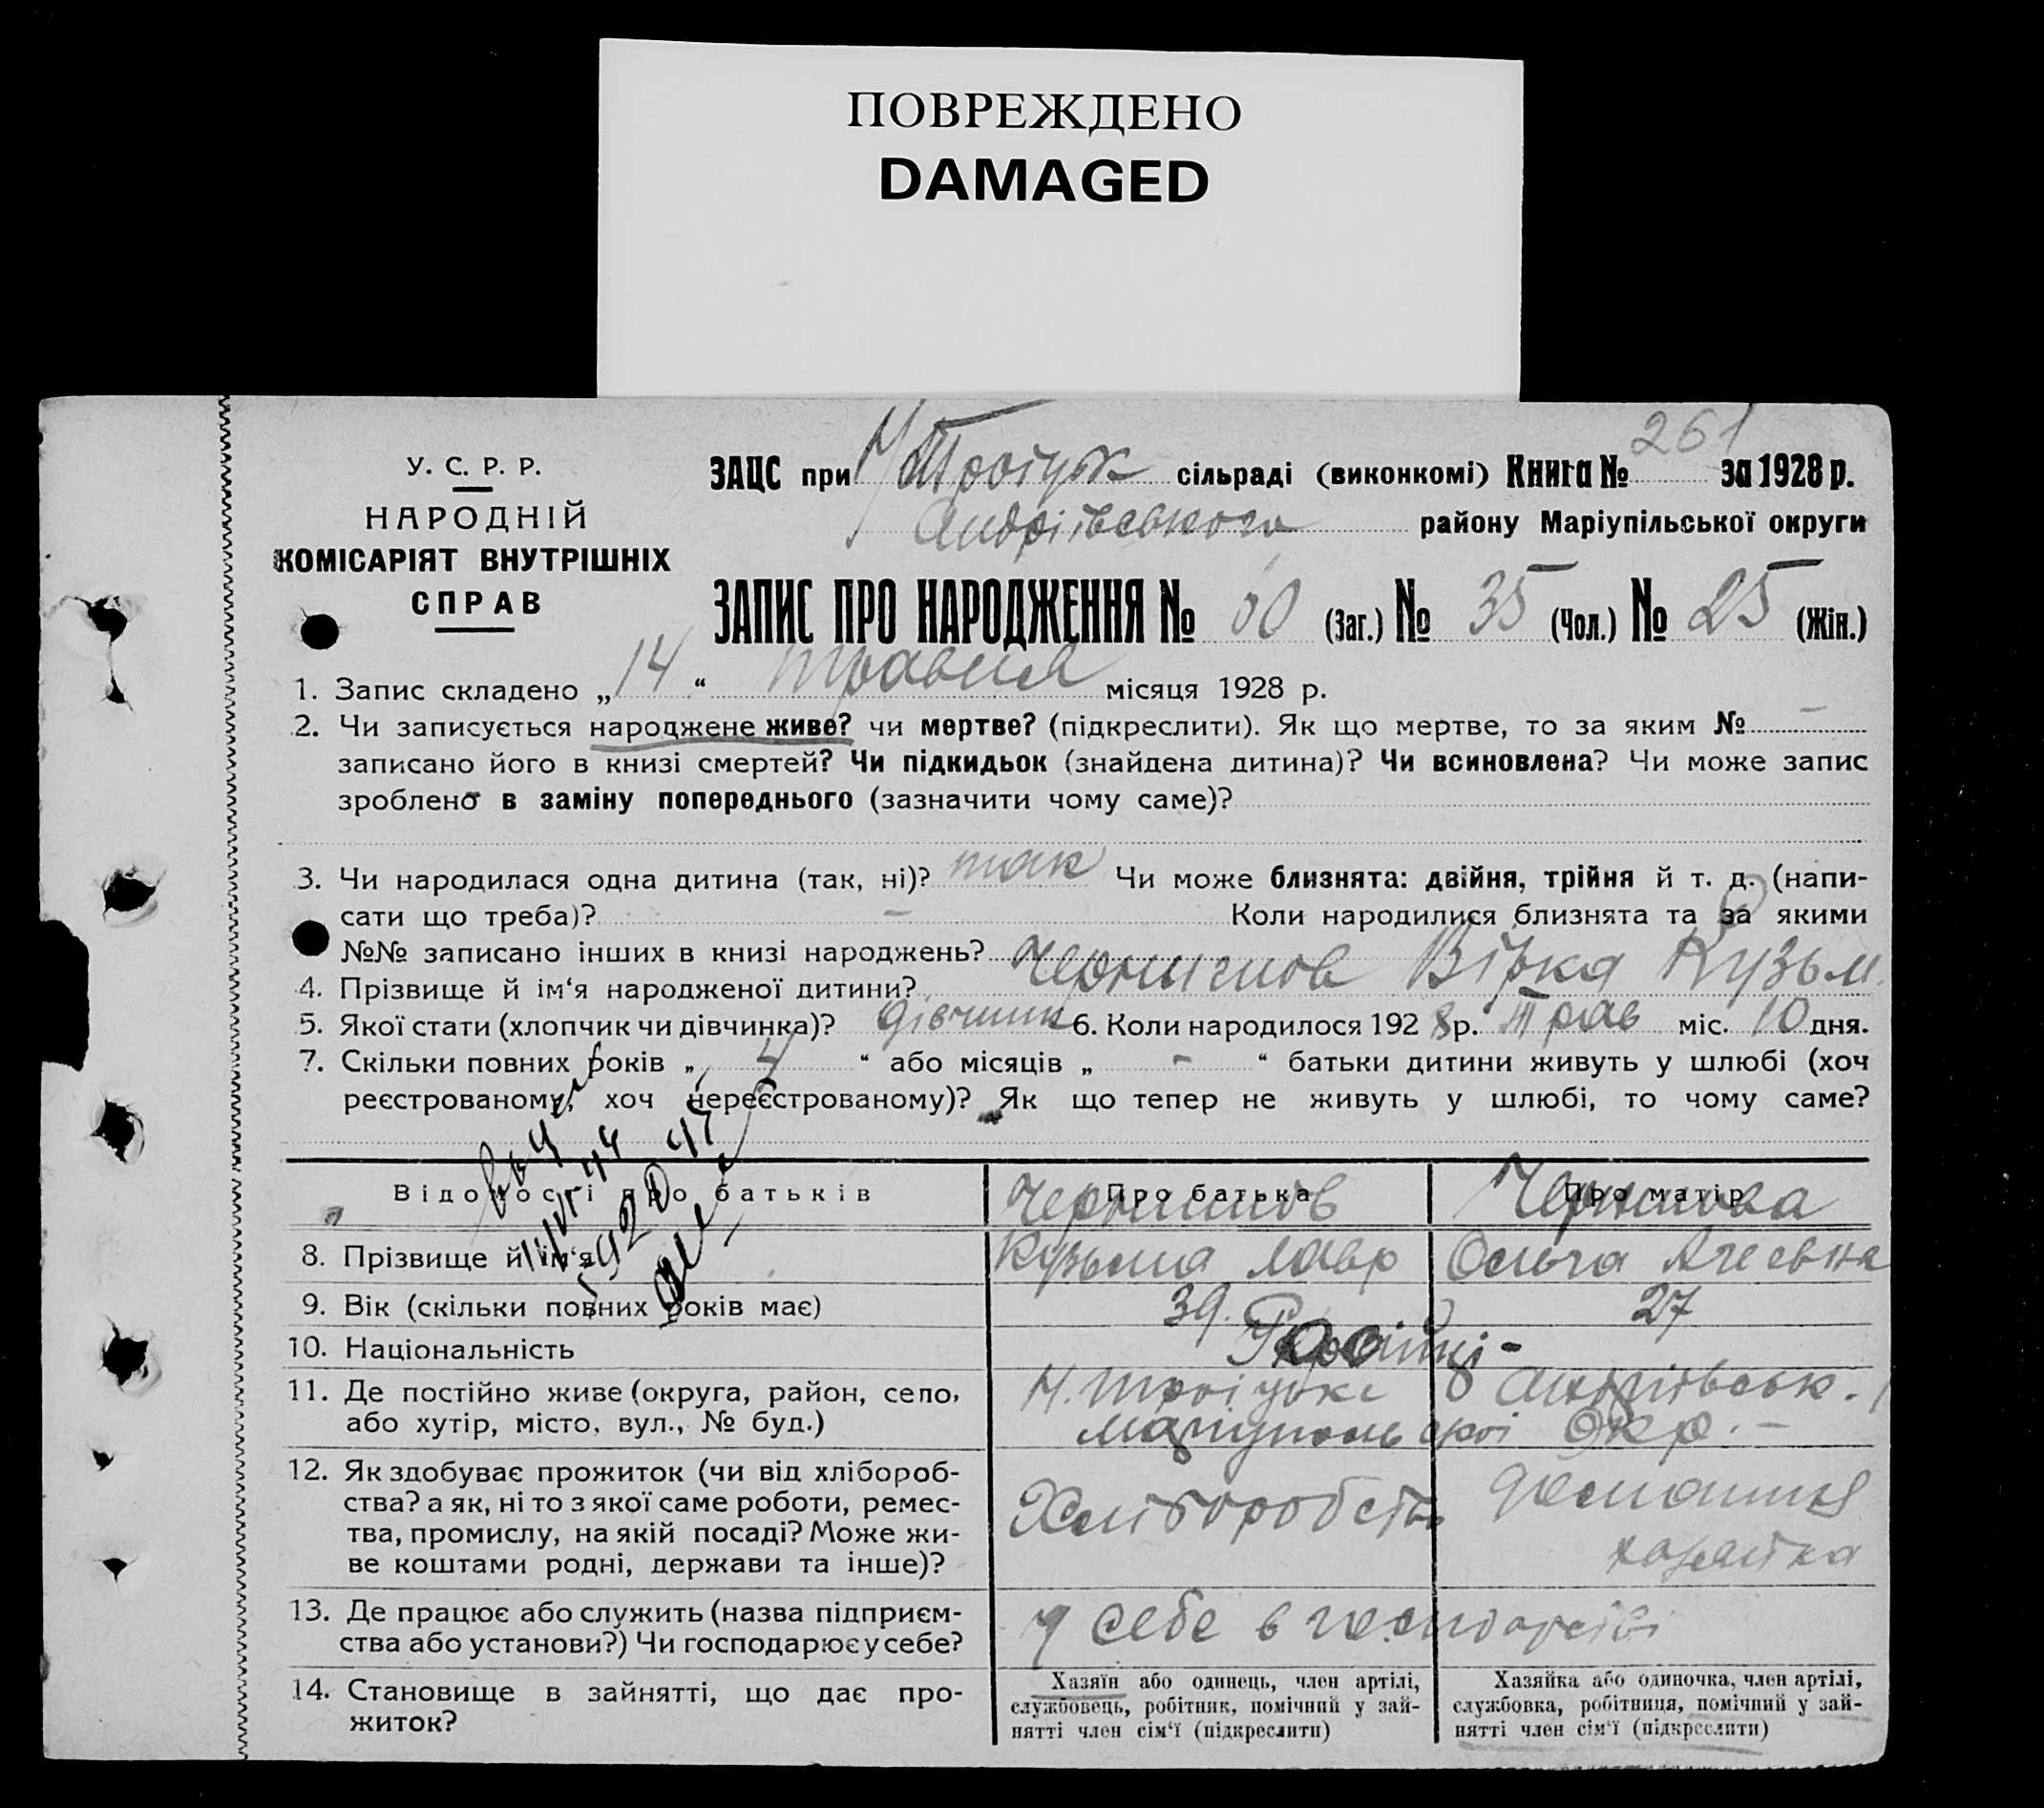 ПОВРЕЖДЕНО
DAMAGED
261
У. С. Р. Р.
НАРОДНІЙ
КОМІСАРІЯТ ВНУТРІШНІХ
СПРАВ
ЗАЦС при Н/Троіцьк сільраді (виконкомі) Книга № за 1928 р.
Андріівського району Маріупільської округи
ЗАПИС ПРО НАРОДЖЕННЯ № 60 (Заг.) № 35 (Чол.) № 25 (Жін.)
1. Запис складено „ 14 “ травня місяця 1928 р.
2. Чи записується народжене живе? чи мертве? (підкреслити). Як що мертве, то за яким № –
записано його в книзі смертей? Чи підкидьок (знайдена дитина)? Чи всиновлена? Чи може запис
зроблено в заміну попереднього (зазначити чому саме)?
3. Чи народилася одна дитина (так, ні)? так Чи може близнята: двійня, трійня й т. д. (напи-
сати що треба)? – Коли народилися близнята та за якими
№№ записано інших в книзі народжень?
4. Прізвище й ім‘я народженої дитини? Вірка Кузьм.
5. Якої стати (хлопчик чи дівчинка)? дівчинк 6. Коли народилося 1928 р. Трав міс. 10 дня.
7. Скільки повних років „ 4 “ або місяців „ - “ батьки дитини живуть у шлюбі (хоч
реєстрованому, хоч нереєстрованому)? Як що тепер не живуть у шлюбі, то чому саме?
Відомості про батьків Про батька Про матір
8. Прізвище й ім‘я Кузьма Лавр Ольга
9. Вік (скільки повних років має) 39. 27
10. Національність
11. Де постійно живе (округа, район, село, Н. Троіцьке Андріівськ.
або хутір, місто, вул., № буд.) Маріупольскоі Окр. –
12. Як здобуває прожиток (чи від хлібороб-
ства? а як, ні то з якої саме роботи, ремес- Хліборобств домашня
тва, промислу, на якій посаді? Може жи-
ве коштами родні, держави та інше)? хазяйка
13. Де працює або служить (назва підприєм- У себе в господарстві
ства або установи?) Чи господарює у себе?
14. Становище в зайнятті, що дає про-
житок?
Хазяїн або одинець, член артілі,
службовець, робітник, помічний у зай-
нятті член сім‘ї (підкреслити)
Хазяйка або одиночка, член артілі,
службовка, робітниця, помічний у зай-
нятті член сім‘ї (підкреслити)